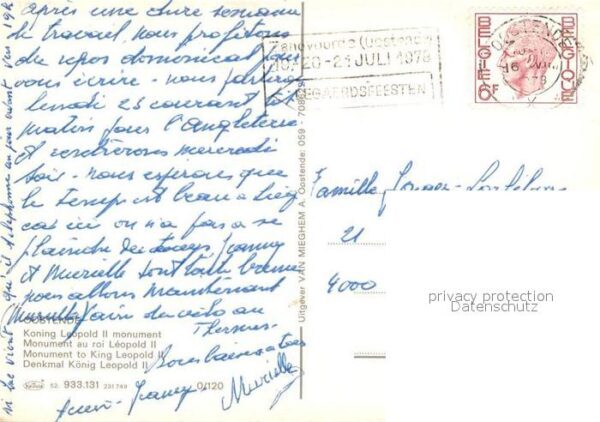 après une dure semaine
de travail, nous profitons
du repos dominical
vous écrire - nous
lundi 23 courant
matin pour l'Angleterre
et rentrerons mercredi
soir - nous espérons que
le temps est beau à Liège
car ici on n'a pas à se
plaindre du temps, Jeanny
et Murielle sont toute bronzée
nous allons maintenant
faire du vélo au
Thermes.
Bons baisers à tous
Jeanny
Murielle
si tu vient qu'il téléphone un jour avant vers 19h
Zandvoorde (Oostende)
20-21 JULI 1978
EGAARDSFEESTEN
OOSTENDE
16
BELGIE
BELGIQUE
6F
Uitgever VAN MIEGHEM A. Oostende: 059 -
Famille
21
4000
privacy protection
Datenschutz
OOSTENDE
Koning Leopold II monument
Monument au roi Léopold II
Monument to King Leopold II
Denkmal König Leopold II
52. 933.131 231749 0/120